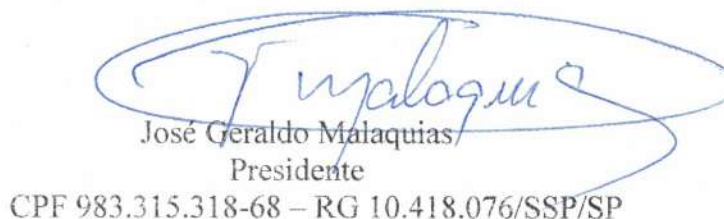 José Geraldo Malaquias
Presidente
CPF 983.315.318-68 – RG 10.418.076/SSP/SP